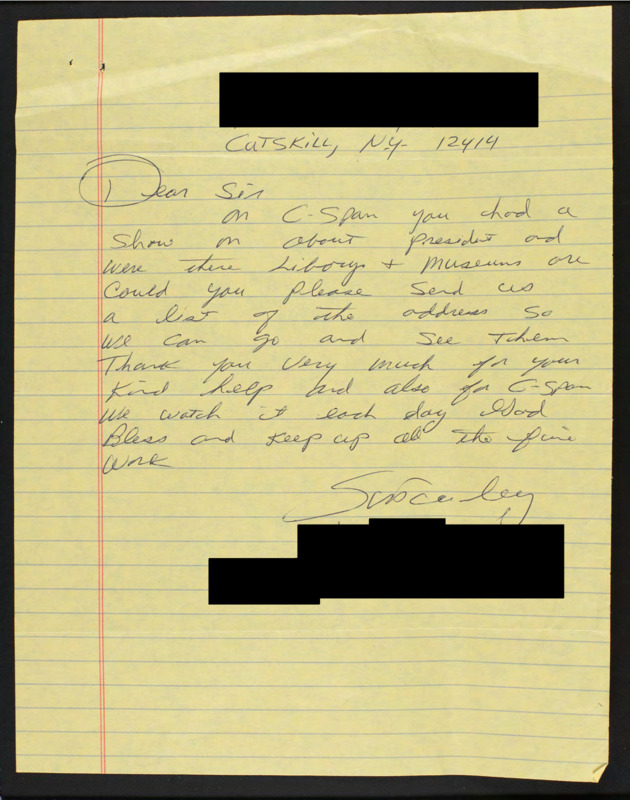 Catskill, NY- 12414
Dear Sir
on C-Span you had a
Show on about President and
were there Librarys + Museums are
Could you please Send us
a list of the address So
we can go and See them
Thank you very much for your
Kind help and also for C-Span
we watch it each day God
Bless and Keep up all the fine
work